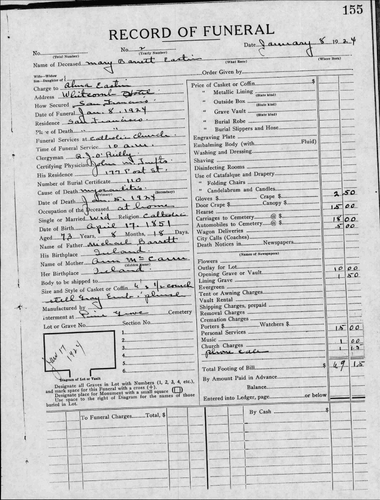 155
RECORD OF FUNERAL
No.
No. 2
Date, January 8 1924
(Total Number)
(Yearly Number)
Name of Deceased Mary Barrett Eastin
(What Name)
(Where Born)
Charge to Alma Eastin
Order Given by
Address Whitcomb Hotel
How Secured San Francisco
Date of Funeral Jan. 8. 1924
Place of Death San Francisco
Funeral Services at Catholic Church
Time of Funeral Service 10 a.m.
Clergyman
Certifying Physician John
His Residence 177 Post St.
Number of Burial Certificate 110
Cause of Death Myocarditis
Date of Death Jan. 5. 1924
Occupation of the Deceased at home
Single or Married Wid Religion Catholic
Date of Birth April 17. 1851
Aged 72 Years, 8 Months, 18 Days.
Name of Father Michael Barrett
His Birthplace Ireland
Name of Mother Ann
Her Birthplace Ireland
Body to be shipped to
Size and Style of Casket or Coffin
Manufactured by
Interment at Pine Grove Cemetery
Lot or Grave No. Section No.
1.
2.
3.
4.
5.
6.
Jan 17 1924
Diagram of Lot or Vault
Designate all Graves in Lot with Numbers (1, 2, 3, 4, etc.), and mark space for this Funeral with a cross (+).
Designate place for Monument with a small square
Use space to right of Diagram for the names of those buried in Lot.
Price of Casket or Coffin
" Metallic Lining
(State Kind)
" Outside Box
(State Kind)
" Grave Vault
(State Kind)
" Burial Robe
(State Kind)
" Burial Slippers and Hose
Engraving Plate
Embalming Body (with Fluid)
Washing and Dressing
Shaving
Disinfecting Rooms
Use of Catafalque and Drapery
" Folding Chairs
" Candelabrum and Candles
Gloves $ Crape $ 2 50
Door Crape $ Canopy $
Hearse 15 00
Carriages to Cemetery @ $
Automobiles to Cemetery @ $
Wagon Deliveries 5 00
City Calls (Coaches) @ $
Death Notices in Newspapers
(Names of Newspapers)
Flowers
Outlay for Lot 10 00
Opening Grave or Vault 1 50
Lining Grave
Evergreens
Tent or Awning Charges
Vault Rental
Shipping Charges, prepaid
Removal Charges
Cremation Charges
Porters $ Watchers $ 15 00
Personal Services
Music 1 00
Church Charges
Phone Calls
Total Footing of Bill $ 69 15
By Amount Paid in Advance
Balance $
Entered into Ledger, page or below
To Funeral Charges Total, $
By Cash $